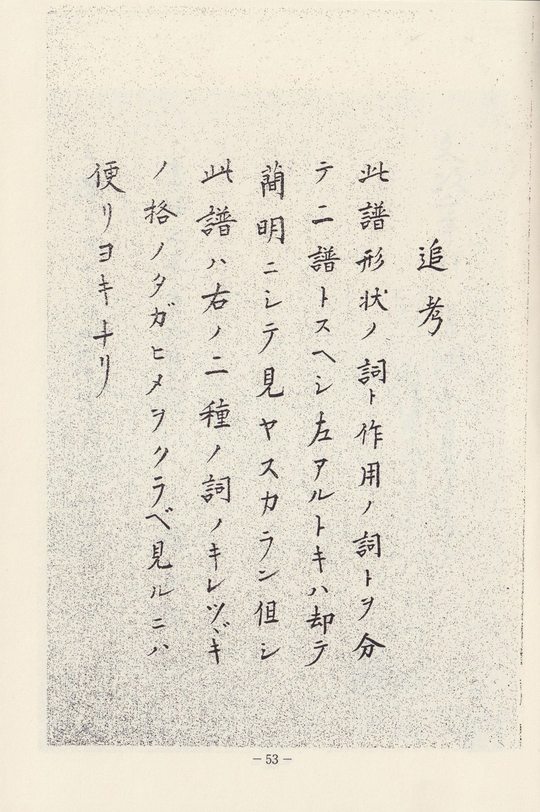 追考
此譜形状ノ詞ト作用ノ詞トヲ分
テ二譜トスヘシ左アルトキハ却テ
蕳明ニシテ見ヤスカラン但シ
此譜ハ右ノ二種ノ詞ノキレツヾキ
ノ格ノタガヒメヲクラベ見ルニハ
便リヨキナリ
— 53 —